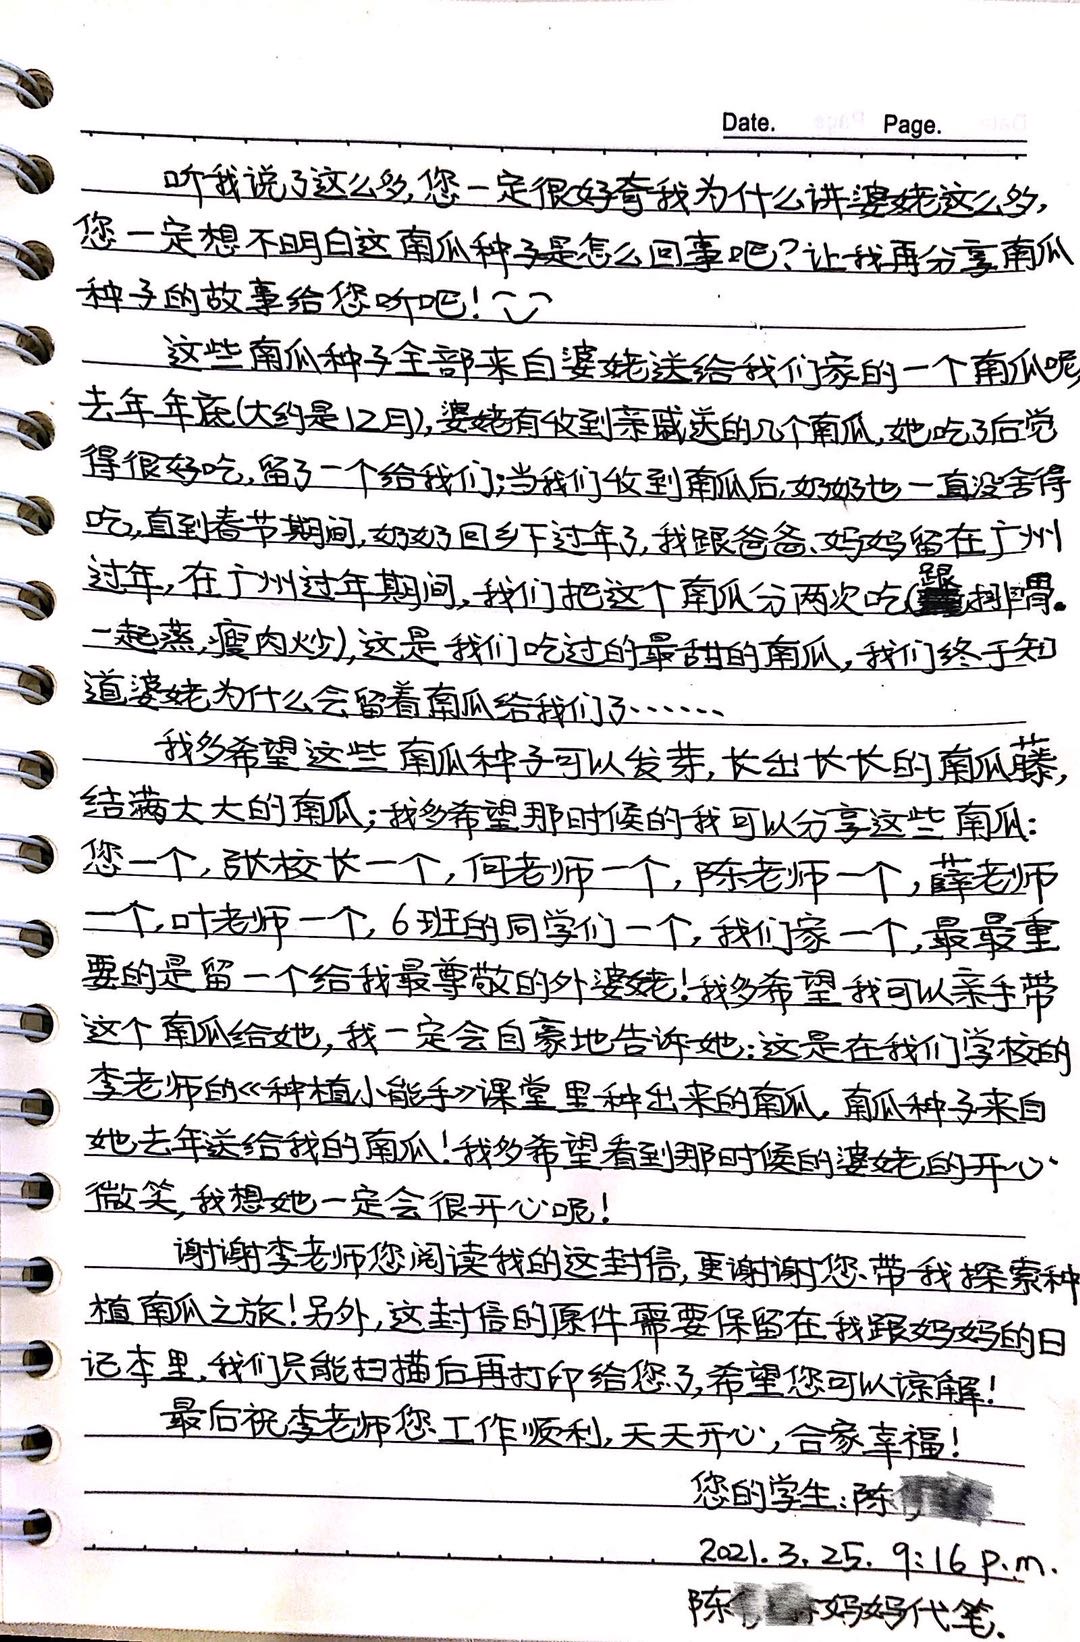 Date. Page.
听我说了这么多,您一定很好奇我为什么讲婆姥这么多,
您一定想不明白这南瓜种子是怎么回事吧?让我再分享南瓜
种子的故事给您听吧!
这些南瓜种子全部来自婆姥送给我们家的一个南瓜呢,
去年年底(大约是12月),婆姥有收到亲戚送的几个南瓜,她吃了后觉
得很好吃,留了一个给我们;当我们收到南瓜后,奶奶也一直没舍得
吃,直到春节期间,奶奶回乡下过年了,我跟爸爸、妈妈留在广州
过年,在广州过年期间,我们把这个南瓜分两次吃(跟排骨
一起蒸,瘦肉炒),这是我们吃过的最甜的南瓜,我们终于知
道婆姥为什么会留着南瓜给我们了……
我多希望这些南瓜种子可以发芽,长出长长的南瓜藤,
结满大大的南瓜;我多希望那时候的我可以分享这些南瓜:
您一个,张校长一个,何老师一个,陈老师一个,薛老师
一个,叶老师一个,6班的同学们一个,我们家一个,最最重
要的是留一个给我最尊敬的外婆姥!我多希望我可以亲手带
这个南瓜给她,我一定会自豪地告诉她:这是在我们学校的
李老师的《种植小能手》课堂里种出来的南瓜,南瓜种子来自
她去年送给我的南瓜!我多希望看到那时候的婆姥的开心
微笑,我想她一定会很开心呢!
谢谢李老师您阅读我的这封信,更谢谢您带我探索种
植南瓜之旅!另外,这封信的原件需要保留在我跟妈妈的日
记本里,我们只能扫描后再打印给您了,希望您可以谅解!
最后祝李老师您工作顺利,天天开心,合家幸福!
您的学生:陈
2021.3.25. 9:16 p.m.
陈 妈妈代笔.